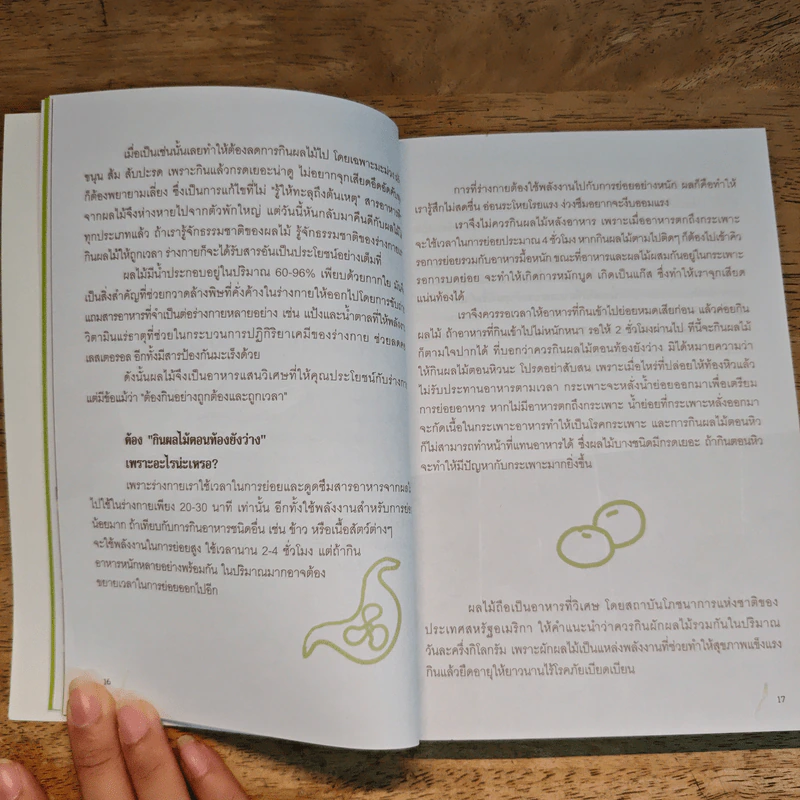 เมื่อเป็นเช่นนั้นเลยทำให้ต้องลดการกินผลไม้ไป โดยเฉพาะมะม่วง
ขนุน ส้ม สับปะรด เพราะกินแล้วกรดเยอะน่ะดู ไม่อยากจุกเสียดอึดอัด
ก็ต้องพยายามเลี่ยง ซึ่งเป็นการแก้ไขที่ไม่ "รู้ให้ทะลุถึงต้นเหตุ" สารอาหาร
จากผลไม้จึงห่างหายไปจากตัวพักใหญ่ แต่วันนี้หันกลับมาคืนดีกับผลไม้
ทุกประเภทแล้ว ถ้าเรารู้จักธรรมชาติของผลไม้ รู้จักธรรมชาติของร่างกาย
กินผลไม้ให้ถูกเวลา ร่างกายก็จะได้รับสารอันเป็นประโยชน์อย่างเต็มที่
ผลไม้มีน้ำประกอบอยู่ในปริมาณ 60-96% เพียบด้วยกากใย
เป็นสิ่งสำคัญที่ช่วยกวาดล้างพิษที่คั่งค้างในร่างกายให้ออกไปโดยการขับถ่าย
แถมสารอาหารที่จำเป็นต่อร่างกายหลายอย่าง เช่น แป้งและน้ำตาลที่ให้พลังงาน
วิตามินแร่ธาตุที่ช่วยในกระบวนการปฏิกิริยาเคมีของร่างกาย ช่วยลด
เลสเตอรอล อีกทั้งมีสารป้องกันมะเร็งด้วย
ดังนั้นผลไม้จึงเป็นอาหารแสนวิเศษที่ให้คุณประโยชน์กับร่างกาย
แต่มีข้อแม้ว่า "ต้องกินอย่างถูกต้องและถูกเวลา"
ต้อง "กินผลไม้ตอนท้องยังว่าง"
เพราะอะไรน่ะเหรอ?
เพราะร่างกายเราใช้เวลาในการย่อยและดูดซึมสารอาหารจากผลไม้
ไปใช้ในร่างกายเพียง 20-30 นาที เท่านั้น อีกทั้งใช้พลังงานสำหรับการย่อย
น้อยมาก ถ้าเทียบกับการกินอาหารชนิดอื่น เช่น ข้าว หรือเนื้อสัตว์ต่างๆ
จะใช้พลังงานในการย่อยสูง ใช้เวลานาน 2-4 ชั่วโมง แต่ถ้ากิน
อาหารหนักหลายอย่างพร้อมกัน ในปริมาณมากอาจต้อง
ขยายเวลาในการย่อยออกไปอีก
16
การที่ร่างกายต้องใช้พลังงานไปกับการย่อยอย่างหนัก ผลก็คือทำให้
เรารู้สึกไม่สดชื่น อ่อนระโหยโรยแรง ง่วงซึมอยากจะงีบออมแรง
เราจึงไม่ควรกินผลไม้หลังอาหาร เพราะเมื่ออาหารตกถึงกระเพาะ
จะใช้เวลาในการย่อยประมาณ 4 ชั่วโมง หากกินผลไม้ตามไปติดๆ ก็ต้องไปเข้าคิว
รอการย่อยรวมกับอาหารมื้อหนัก ขณะที่อาหารและผลไม้ผสมกันอยู่ในกระเพาะ
รอการบดย่อย จะทำให้เกิดการหมักบูด เกิดเป็นแก๊ส ซึ่งทำให้เราจุกเสียด
แน่นท้องได้
เราจึงควรรอเวลาให้อาหารที่กินเข้าไปย่อยหมดเสียก่อน แล้วค่อยกิน
ผลไม้ ถ้าอาหารที่กินเข้าไปไม่หนักหนา รอให้ 2 ชั่วโมงผ่านไป ทีนี้จะกินผลไม้
ก็ตามใจปากได้ ที่บอกว่าควรกินผลไม้ตอนท้องยังว่าง มิได้หมายความว่า
ให้กินผลไม้ตอนหิวนะ โปรดอย่าสับสน เพราะเมื่อไหร่ที่ปล่อยให้ท้องหิวแล้ว
ไม่รับประทานอาหารตามเวลา กระเพาะจะหลั่งน้ำย่อยออกมาเพื่อเตรียม
การย่อยอาหาร หากไม่มีอาหารตกถึงกระเพาะ น้ำย่อยที่กระเพาะหลั่งออกมา
จะกัดเนื้อในกระเพาะอาหารทำให้เป็นโรคกระเพาะ และการกินผลไม้ตอนหิว
ก็ไม่สามารถทำหน้าที่แทนอาหารได้ ซึ่งผลไม้บางชนิดมีกรดเยอะ ถ้ากินตอนหิว
จะทำให้มีปัญหากับกระเพาะมากยิ่งขึ้น
ผลไม้ถือเป็นอาหารที่วิเศษ โดยสถาบันโภชนาการแห่งชาติของ
ประเทศสหรัฐอเมริกา ให้คำแนะนำว่าควรกินผักผลไม้รวมกันในปริมาณ
วันละครึ่งกิโลกรัม เพราะผักผลไม้เป็นแหล่งพลังงานที่ช่วยทำให้สุขภาพแข็งแรง
กินแล้วยืดอายุให้ยาวนานไร้โรคภัยเบียดเบียน
17